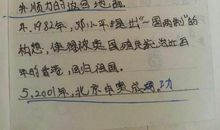 并顺利的返回地面。
4.1982年,邓小平提出"一国两制"的
构想,使难被英国殖民统治近百
年的香港,回归祖国。
5.2001年,北京申奥成功